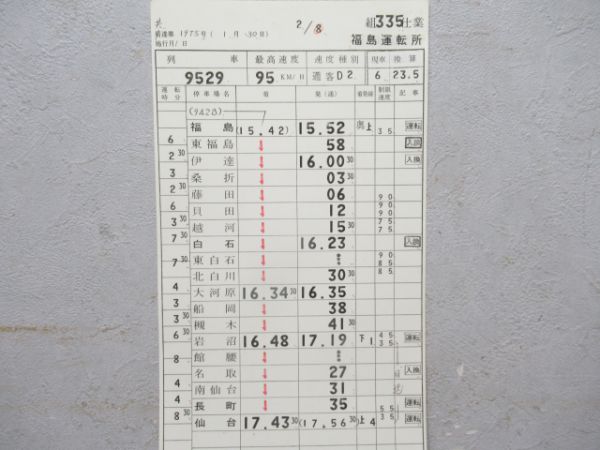 2/8 組335仕業
1975号 (1月30日)
施行月/日 福島運転所
列車 最高速度 速度種別 現車 換算
9529 95KM/H 通客D2 6 23.5
運転時分 停車場名 着 発(通) 着発線 制限速度 記事
(942B)
福島 (15.42) 15.52 上 35 運転
6
東福島 ↓ 58 入換
2 30
伊達 ↓ 16.00 30 入換
3
桑折 ↓ 03 30
2 30
藤田 ↓ 06 90
6
貝田 ↓ 12 90 90
3 30
越河 ↓ 15 30 75 75
7 30
白石 ↓ 16.23 入換
東白石 ↓ 90 85
7 30
北白川 ↓ 30 30 85
4
大河原 16.34 30 16.35
3
船岡 ↓ 38
3 30
槻木 ↓ 41 30
6 30
岩沼 16.48 17.19 下1 45 35 運転
館腰 ↓
8
名取 ↓ 27 入換
4
南仙台 ↓ 31
4
長町 ↓ 35 運転
8 30
仙台 17.43 30 (17.56 30) 上4 55 35 運転